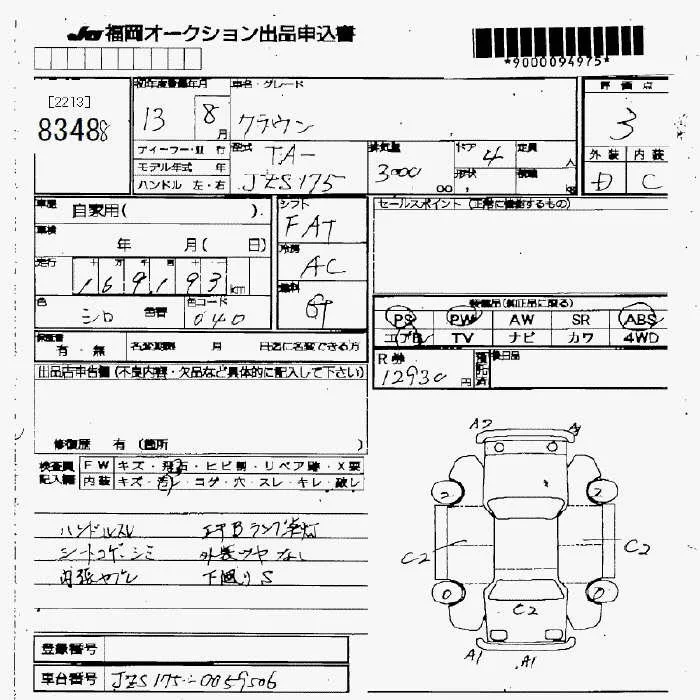 JU 福岡オークション出品申込書
*9000094975*
[2213]
8348
初年度登録年月
13 8月
車名・グレード
クラウン
評価点
3
ディーラー・並行
モデル年式 年
ハンドル 左・右
型式
TA-
JZS175
排気量
3000
cc
ドア
4
形状
定員
人
積載
kg
外装 内装
D C
車歴
自家用( ).
車検
年 月( 日)
走行
十 万 千 百 十
169193 km
シフト
FAT
冷房
AC
燃料
色
シロ
色替
色コード
040
セールスポイント (正常に機能するもの)
装備品(純正品に限る)
PS PW AW SR ABS
エアB TV ナビ カワ 4WD
保証書
有・無
名変期限 月 日迄に名変できる方
R券
12930円
預託済
後日品
出品店申告欄 (不良内容・欠品など具体的に記入して下さい)
修復歴 有 (箇所 )
検査員記入欄
FW キズ・飛石・ヒビ割・リペア跡・X要
内装 キズ・汚レ・コゲ・穴・スレ・キレ・破レ
ハンドルスレ エアBランプ点灯
シートコゲ・シミ 外装ツヤなし
内張ヤブレ 下廻りS
A2 A
2 2
C2 C2
0 0
C2
A1 A1
登録番号
車台番号 JZS175-0059506